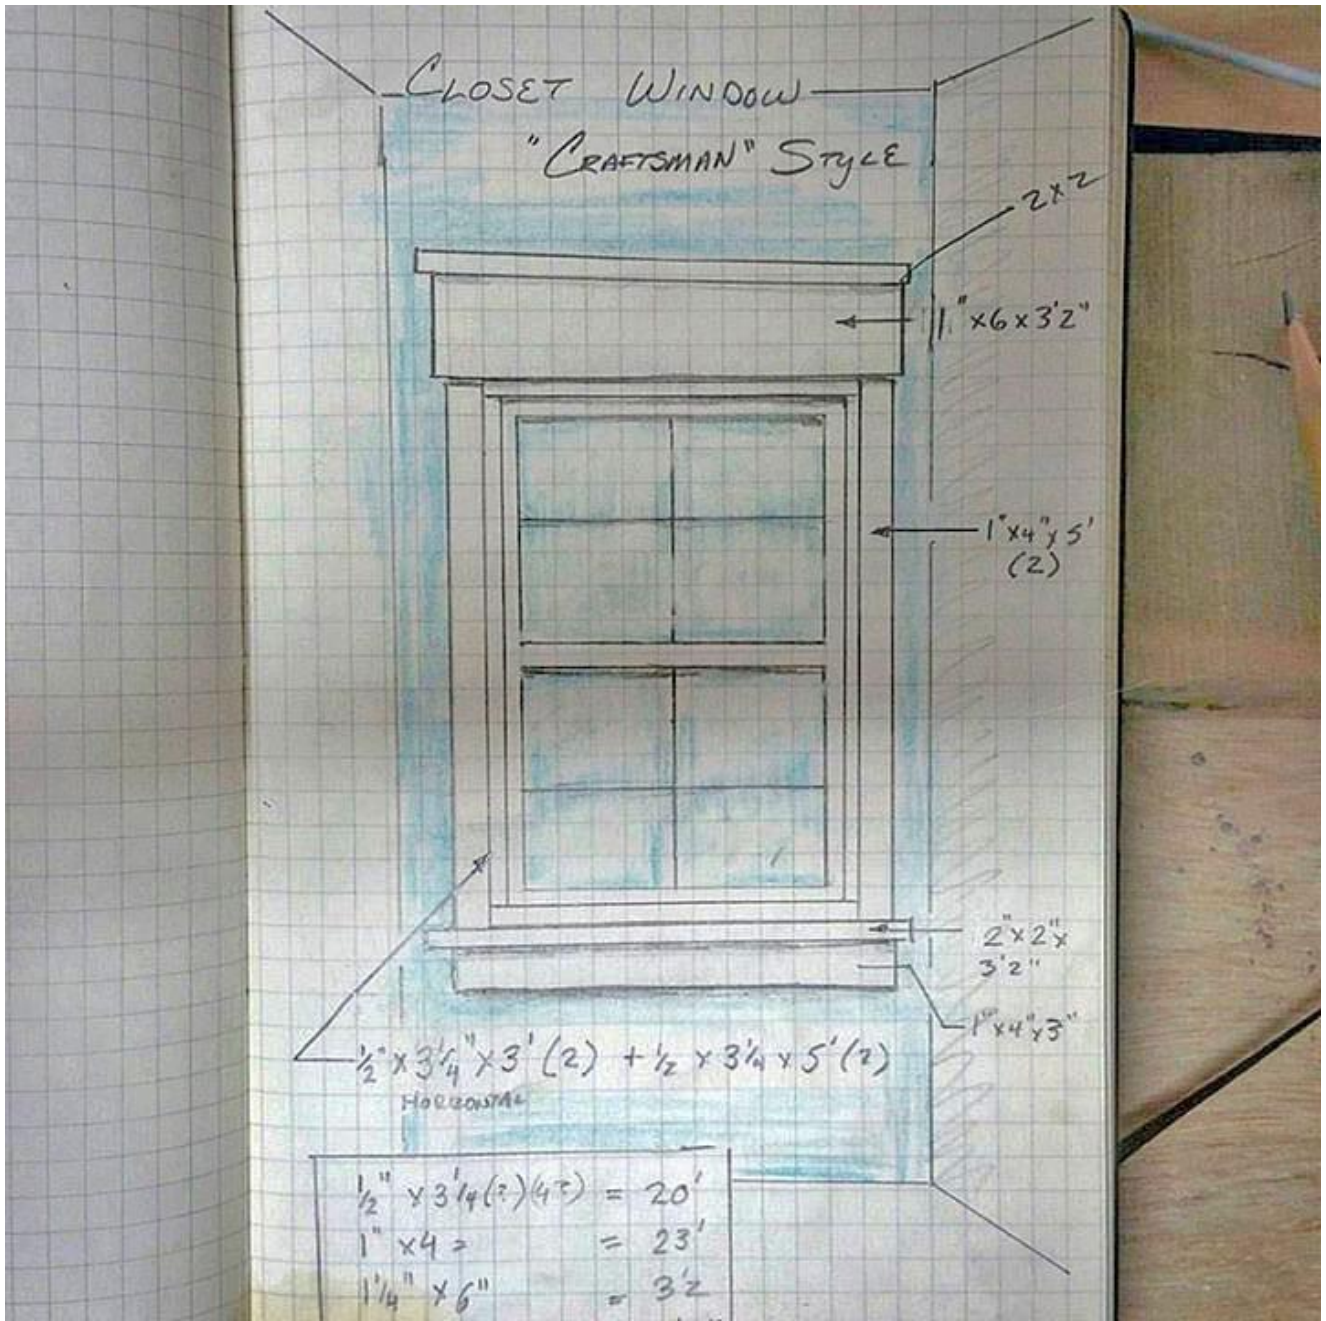 CLOSET WINDOW
"CRAFTSMAN" STYLE
2x2
1" x6 x3'2"
1"x4"x5'
(2)
2"x2"x
3'2"
1"x4"x3"
½" x 3¼" x 3' (2) + ½ x 3¼ x 5' (2)
HORIZONTAL
½" x 3¼(?)(4?) = 20'
1" x4 = = 23'
1¼" x 6" = 3'2